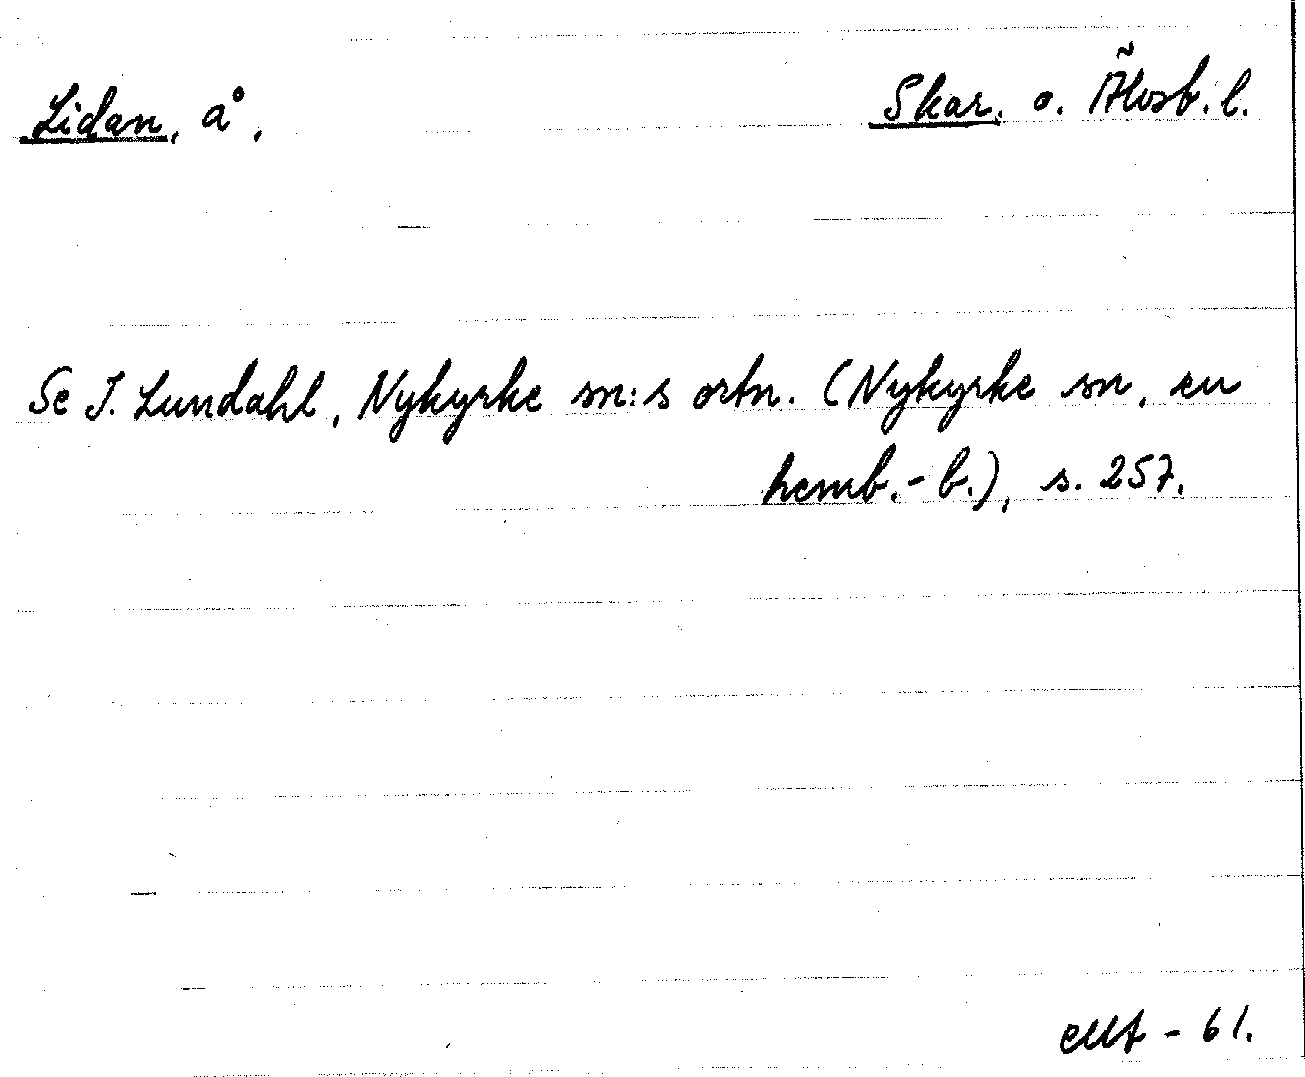 Lidan, å, Skar. o. Älvsb. l.
Se I. Lundahl, Nykyrke sn:s ortn. (Nykyrke sn, en
hemb.-b.), s. 257.
- 61.